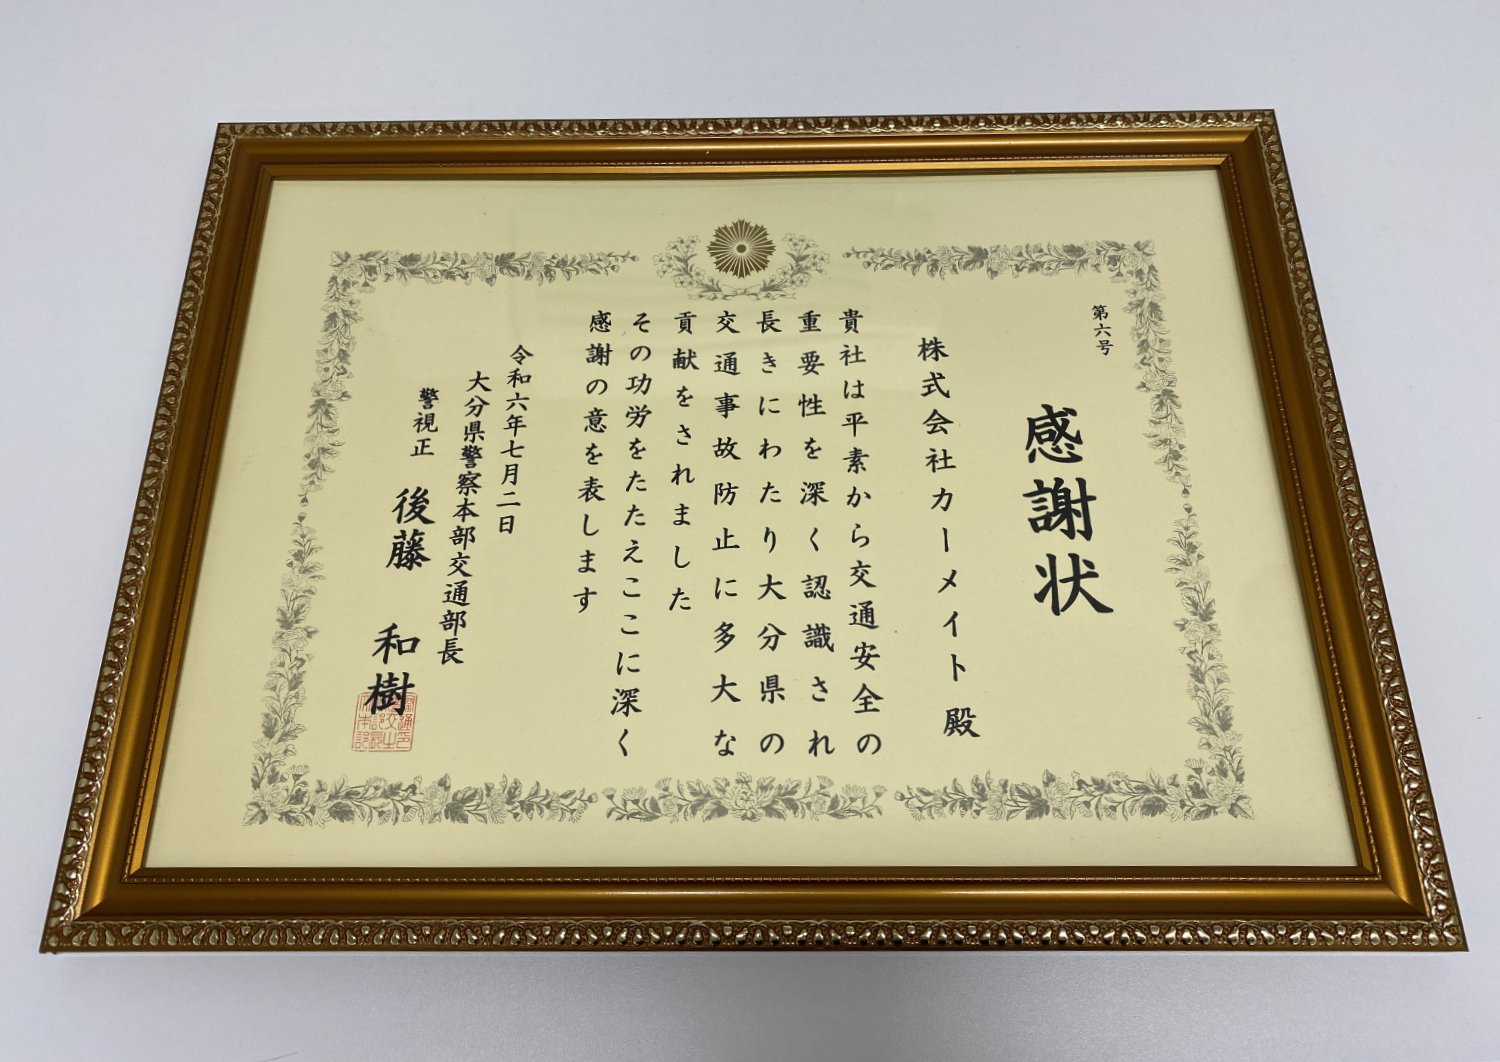 第六号
感謝状
株式会社カーメイト殿
貴社は平素から交通安全の
重要性を深く認識され
長きにわたり大分県の
交通事故防止に多大な
貢献をされました
その功労をたたえここに深く
感謝の意を表します
令和六年七月二日
大分県警察本部交通部長
警視正 後藤 和樹